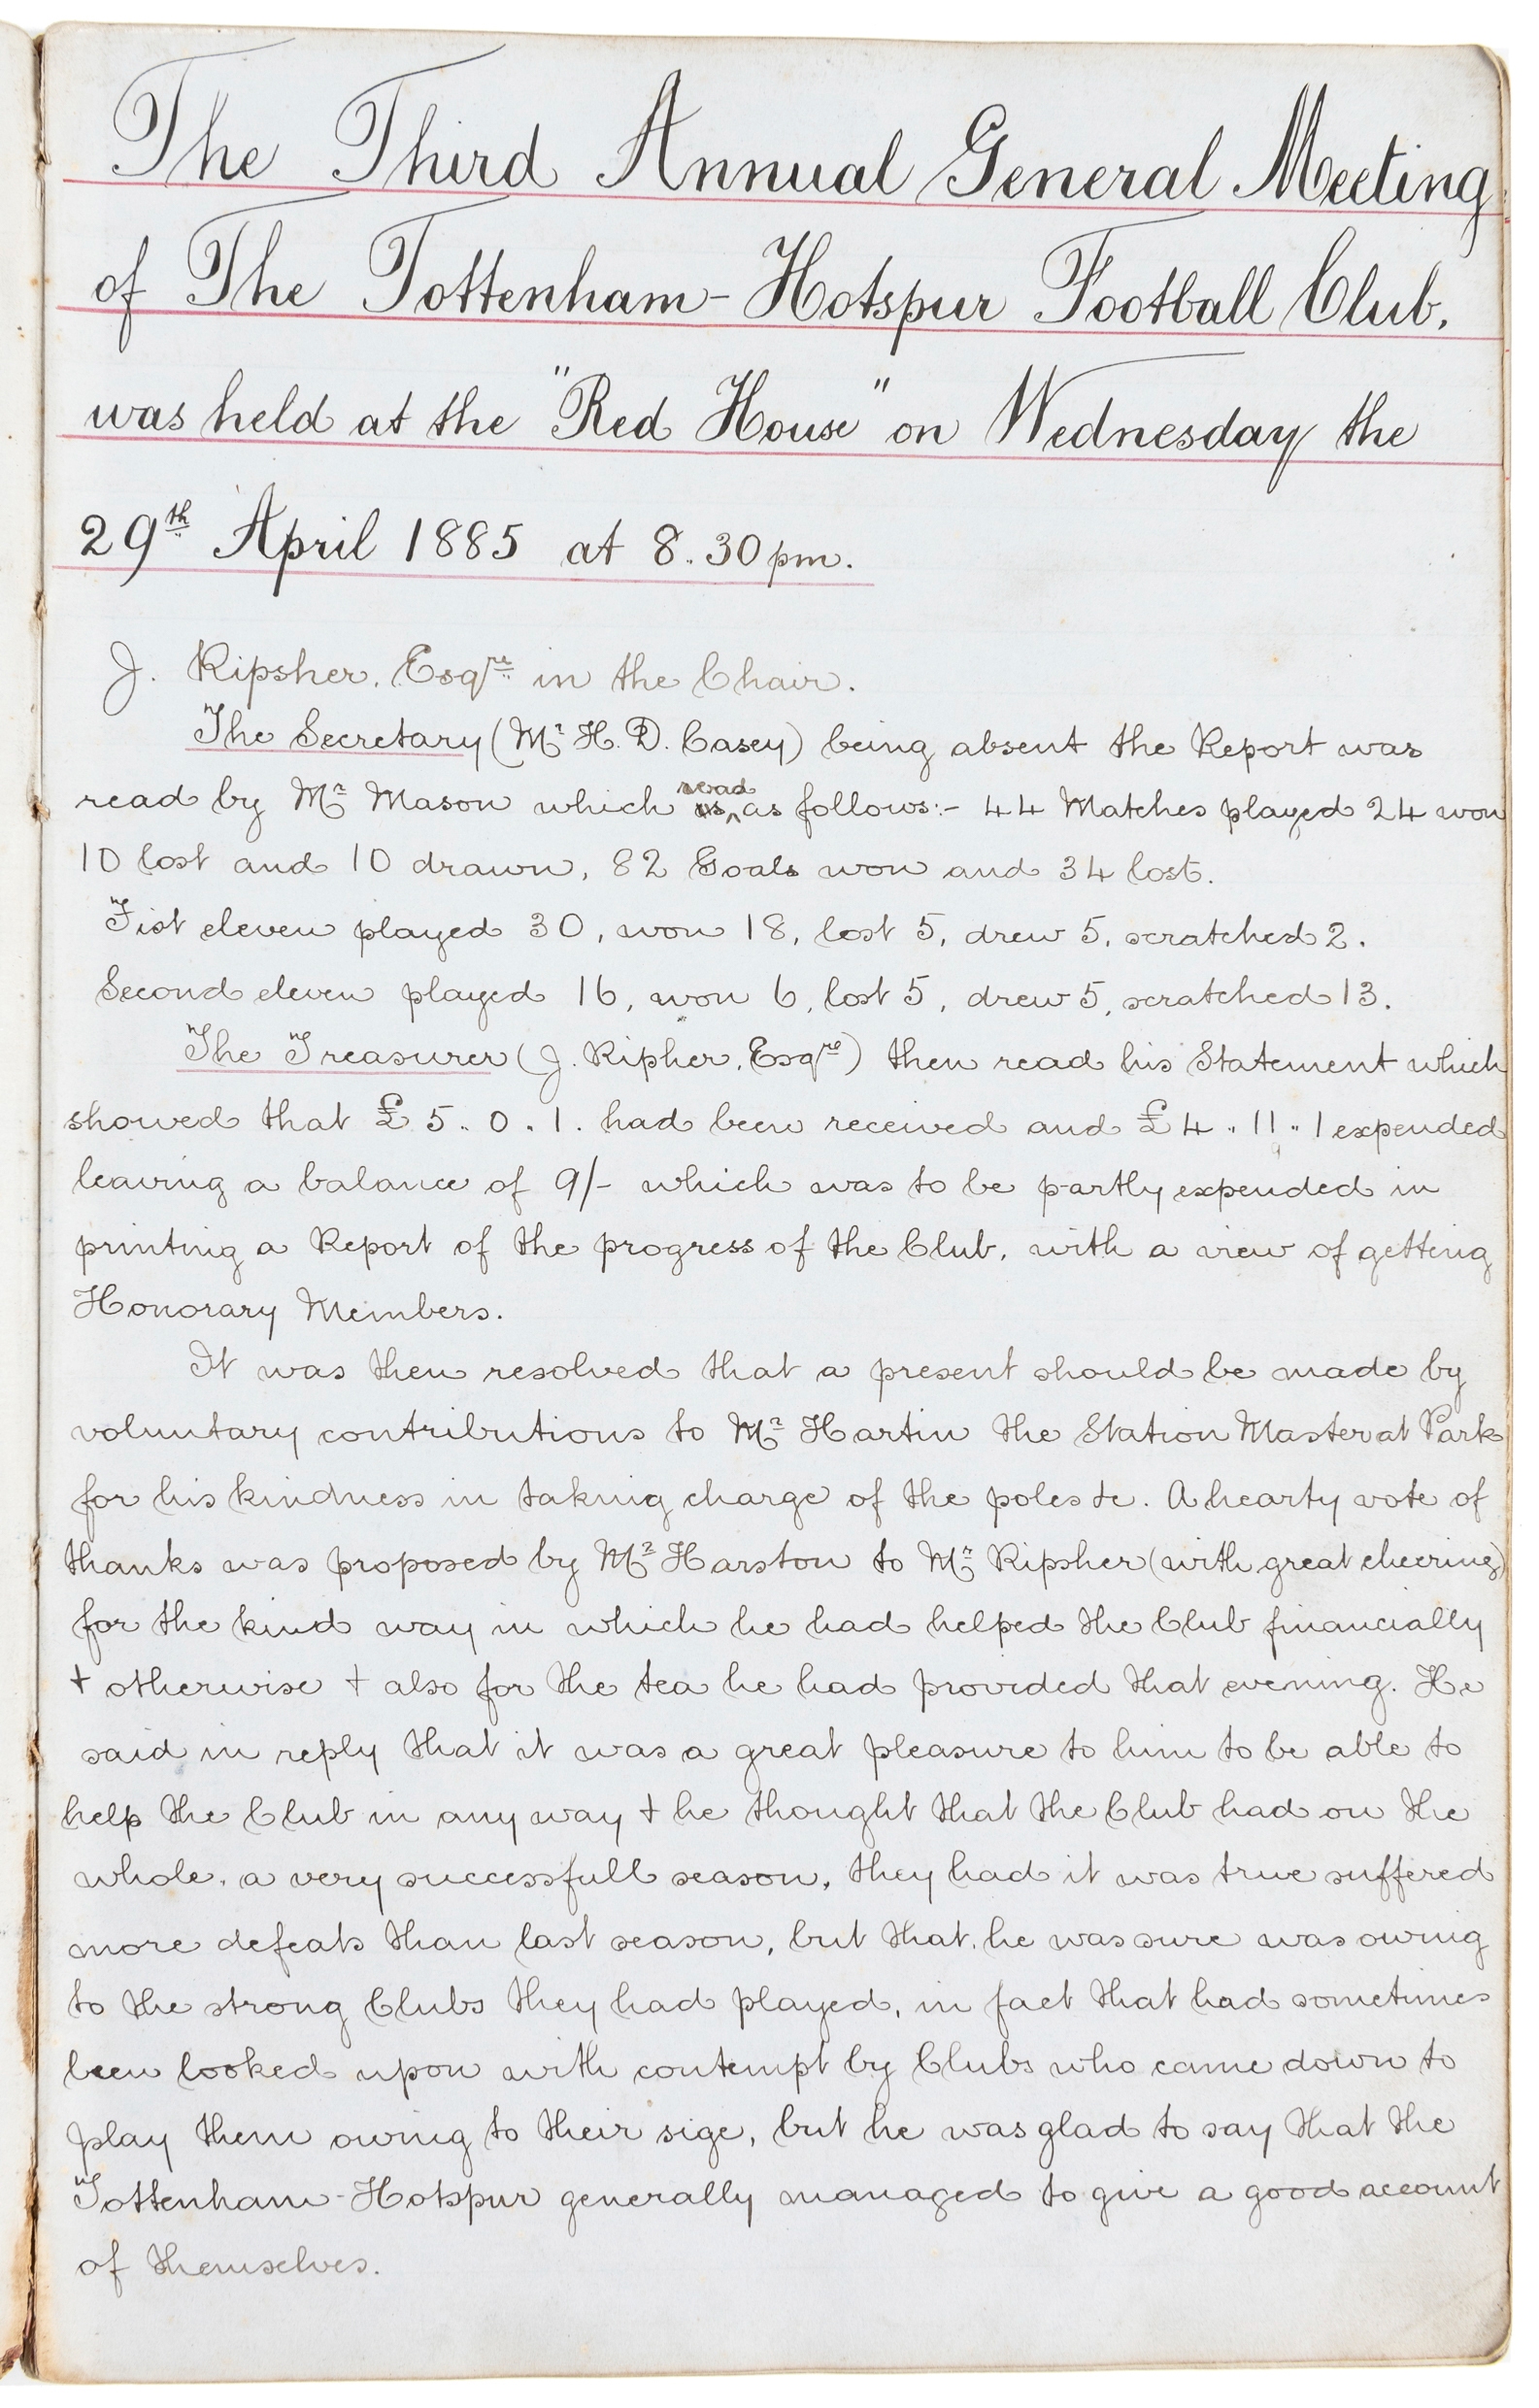 The Third Annual General Meeting
of The Tottenham-Hotspur Football Club.
was held at the "Red House" on Wednesday the
29th April 1885 at 8.30 pm.
J. Ripsher, Esqre in the Chair.
The Secretary (Mr H. D. Casey) being absent the Report was
read by Mr Mason which is read as follows:- 44 Matches played 24 won
10 lost and 10 drawn, 82 Goals won and 34 lost.
Fist eleven played 30, won 18, lost 5, drew 5, scratched 2.
Second eleven played 16, won 6, lost 5, drew 5, scratched 13.
The Treasurer (J. Ripher, Esqre) then read his Statement which
showed that £5.. 0 . 1. had been received and £4 .. 11 .. 1 expended
leaving a balance of 9/- which was to be partly expended in
printing a Report of the progress of the Club, with a view of getting
Honorary Members.
It was then resolved that a present should be made by
voluntary contributions to Mr Hartin the Station Master at Park
for his kindness in taking charge of the poles &c. A hearty vote of
thanks was proposed by Mr Harston to Mr Ripsher (with great cheering)
for the kind way in which he had helped the Club financially
+ otherwise + also for the tea he had provided that evening. He
said in reply that it was a great pleasure to him to be able to
help the Club in any way + he thought that the Club had on the
whole, a very successfull season, they had it was true suffered
more defeats than last season, but that, he was sure was owing
to the strong Clubs they had played, in fact that had sometimes
been looked upon with contempt by Clubs who came down to
play them owing to their sige, but he was glad to say that the
Tottenham-Hotspur generally managed to give a good account
of themselves.